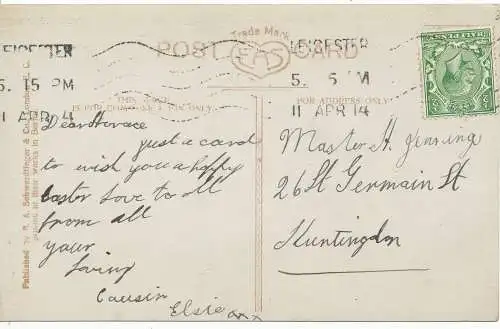 Trade Mark
POST CARD
EAS
LEICESTER
5. 15 PM
11 APR 14
LEICESTER
5. 5 M
11 APR 14
HALFPENNY
THIS
FOR ADDRESS ONLY
Dear Horace
just a card
to wish you a happy
easter love to all
from all
your
loving
Causin
Elsie xx
Master H. Jenning
26 St Germain St
Huntingdon
Published by E. A. Schwerdtfeger & Co., London, E. C.
Printed at their works in Berlin